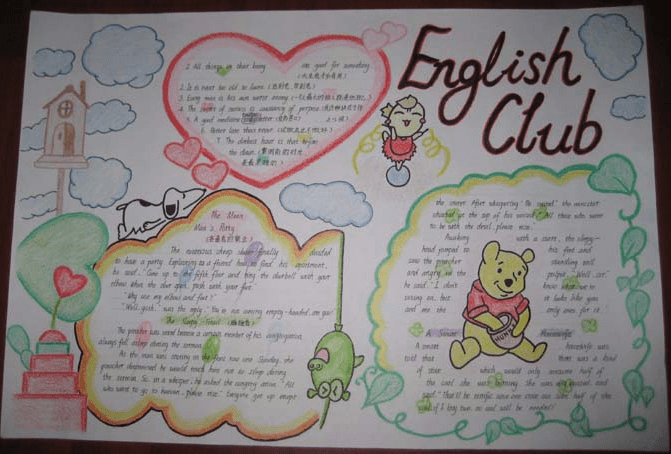 English
Club
1. All things in their being are good for something.
(天生我才必有用)
2. It is never too old to learn. (活到老，学到老)
3. Every man is his own worst enemy. (一个人最大的敌人就是他自己)
4. The secret of success is constancy of purpose.
5. A good medicine tastes bitter. (良药苦口)
6. Better late than never.
7. The darkest hour is that before
the dawn. (黎明前的时刻
是最黑暗的)
The Mean
Man's Party
The notorious cheap skate finally decided
to have a party. Explaining to a friend how to find his apartment,
he said, "Come up to the fifth floor and ring the doorbell with your
elbow. When the door open, push with your foot."
"Why use my elbow and foot?"
"Well, gosh," was the reply. "You're not coming empty-handed, are you?"
The Sleepy
The preacher was vexed because a certain member of his congregation
always fell asleep during the sermon.
As the man was snoring in the front row one Sunday, the
preacher determined he would teach him not to sleep during
the sermon. So, in a whisper, he asked the congregation. "All
who want to go to heaven, please rise." Everyone got up except
the snorer. After whispering "Be seated", the minister
shouted at the top of his voice, "All those who want
to be with the devil, please rise."
Awaking with a start, the sleepy-
head jumped to his feet and
saw the preacher standing tall
and angry in the pulpit. "Well, sir,"
he said, "I don't know what we're
voting on, but it looks like you
and me are the only ones for it."
A Smart Housewife
A smart housewife was
told that there was a kind
of stove which would only consume half of
the coal she was burning. She was very excited, and
said, "That'll be terrific! Since one stove can save half of the
coal, if I buy two, no coal will be needed!"